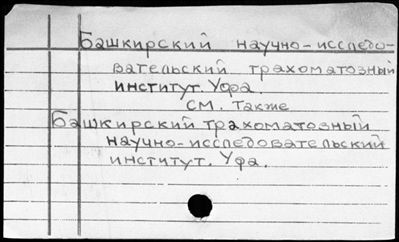 Башкирский научно-исследо-
вательский трахоматозный
институт. Уфа.
см. также
Башкирский трахоматозный
научно-исследовательский
институт. Уфа.